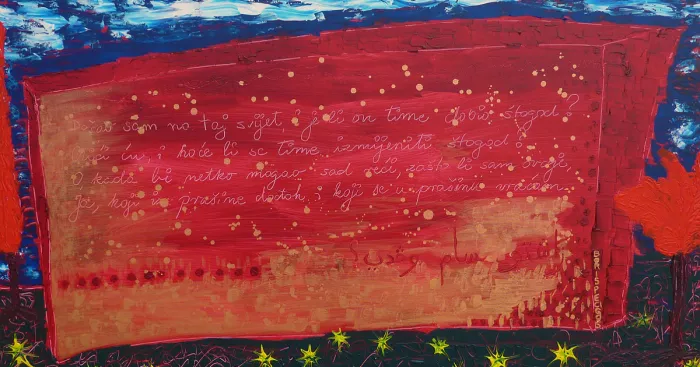 sam na taj svijet, i je li on time dobio štogod?
ću, i hoće li se time izmijeniti štogod?
O kada bi netko mogao sad reći, zašto li sam ovdje,
Ja, koji iz prašine dođoh, i koji se u prašinu vraćam.
BORIS PECIGOŠ